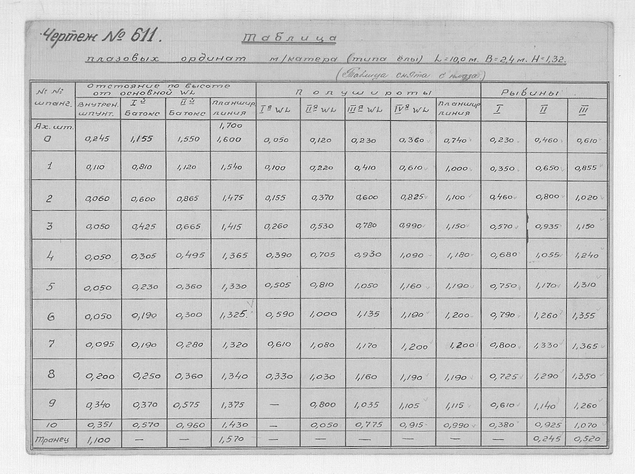 Чертеж № 611.
Таблица
плазовых ординат м/катера (типа елы) L=10,0 м. B=2,4 м. H=1,32.
(Таблица снята с плаза)
№ № шпанг. Отстояние по высоте от основной WL Полушироты Рыбины
Внутрен шпунт. I й Батокс II й Батокс Планшир линия I я WL II я WL III я WL IV я WL Планшир линия I II III
Ах. шт. 1,700
0 0,245 1,155 1,550 1,600 0,050 0,120 0,230 0,360 0,740 0,230 0,460 0,610
1 0,110 0,810 1,120 1,540 0,100 0,220 0,410 0,610 1,000 0,350 0,650 0,855
2 0,060 0,600 0,865 1,475 0,155 0,370 0,600 0,825 1,100 0,460 0,800 1,020
3 0,050 0,425 0,665 1,415 0,260 0,530 0,780 0,990 1,150 0,570 0,935 1,150
4 0,050 0,305 0,495 1,365 0,390 0,705 0,930 1,090 1,180 0,680 1,055 1,240
5 0,050 0,230 0,360 1,330 0,505 0,810 1,050 1,160 1,190 0,750 1,170 1,310
6 0,050 0,190 0,300 1,325 0,590 1,000 1,135 1,190 1,200 0,790 1,260 1,355
7 0,095 0,190 0,280 1,320 0,610 1,080 1,170 1,200 1,200 0,800 1,330 1,365
8 0,200 0,250 0,360 1,340 0,330 1,030 1,160 1,190 1,190 0,725 1,290 1,350
9 0,340 0,370 0,575 1,375 — 0,800 1,035 1,105 1,115 0,610 1,140 1,260
10 0,351 0,570 0,960 1,430 — 0,050 0,775 0,915 0,990 0,380 0,925 1,070
Транец 1,100 — — 1,570 — — — — — — 0,245 0,520